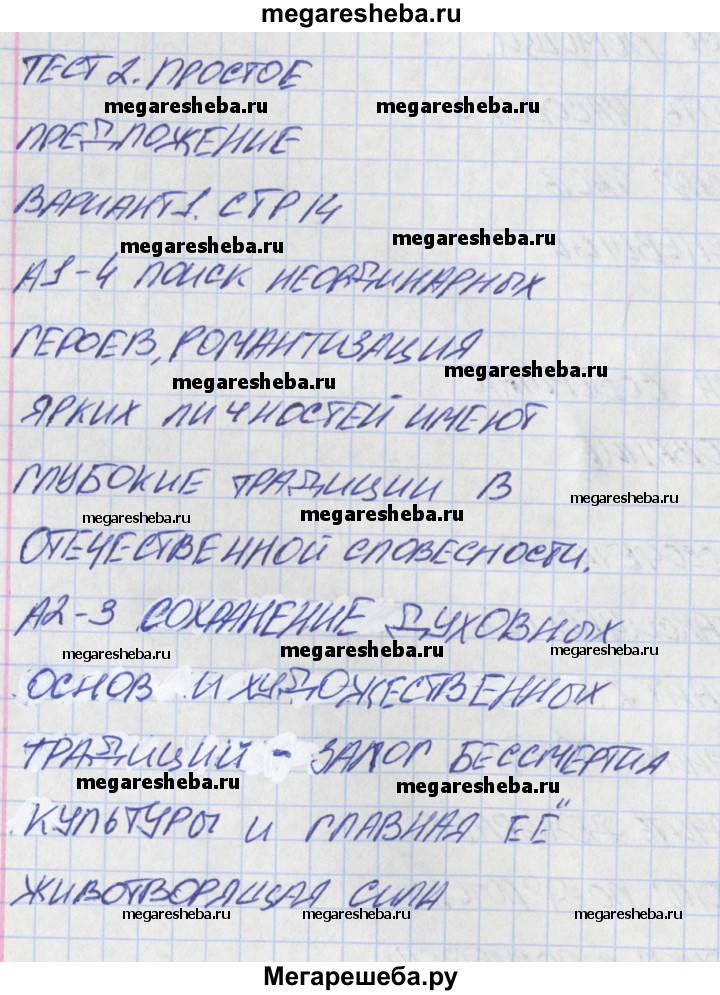 megaresheba.ru
ТЕСТ 2. ПРОСТОЕ
megaresheba.ru megaresheba.ru
ПРЕДЛОЖЕНИЕ
ВАРИАНТ 1. СТР 14
megaresheba.ru megaresheba.ru
А1-4 ПОИСК НЕОРДИНАРНЫХ
ГЕРОЕВ, РОМАНТИЗАЦИЯ
megaresheba.ru megaresheba.ru
ЯРКИХ ЛИЧНОСТЕЙ ИМЕЮТ
ГЛУБОКИЕ ТРАДИЦИИ В
megaresheba.ru megaresheba.ru megaresheba.ru
ОТЕЧЕСТВЕННОЙ СЛОВЕСНОСТИ.
А2-3 СОХРАНЕНИЕ ДУХОВНЫХ
megaresheba.ru megaresheba.ru megaresheba.ru
ОСНОВ И ХУДОЖЕСТВЕННЫХ
ТРАДИЦИЙ - ЗАЛОГ БЕССМЕРТИЯ
megaresheba.ru megaresheba.ru
КУЛЬТУРЫ И ГЛАВНАЯ ЕЁ
ЖИВОТВОРЯЩАЯ СИЛА
megaresheba.ru megaresheba.ru megaresheba.ru
Мегарешеба.ру